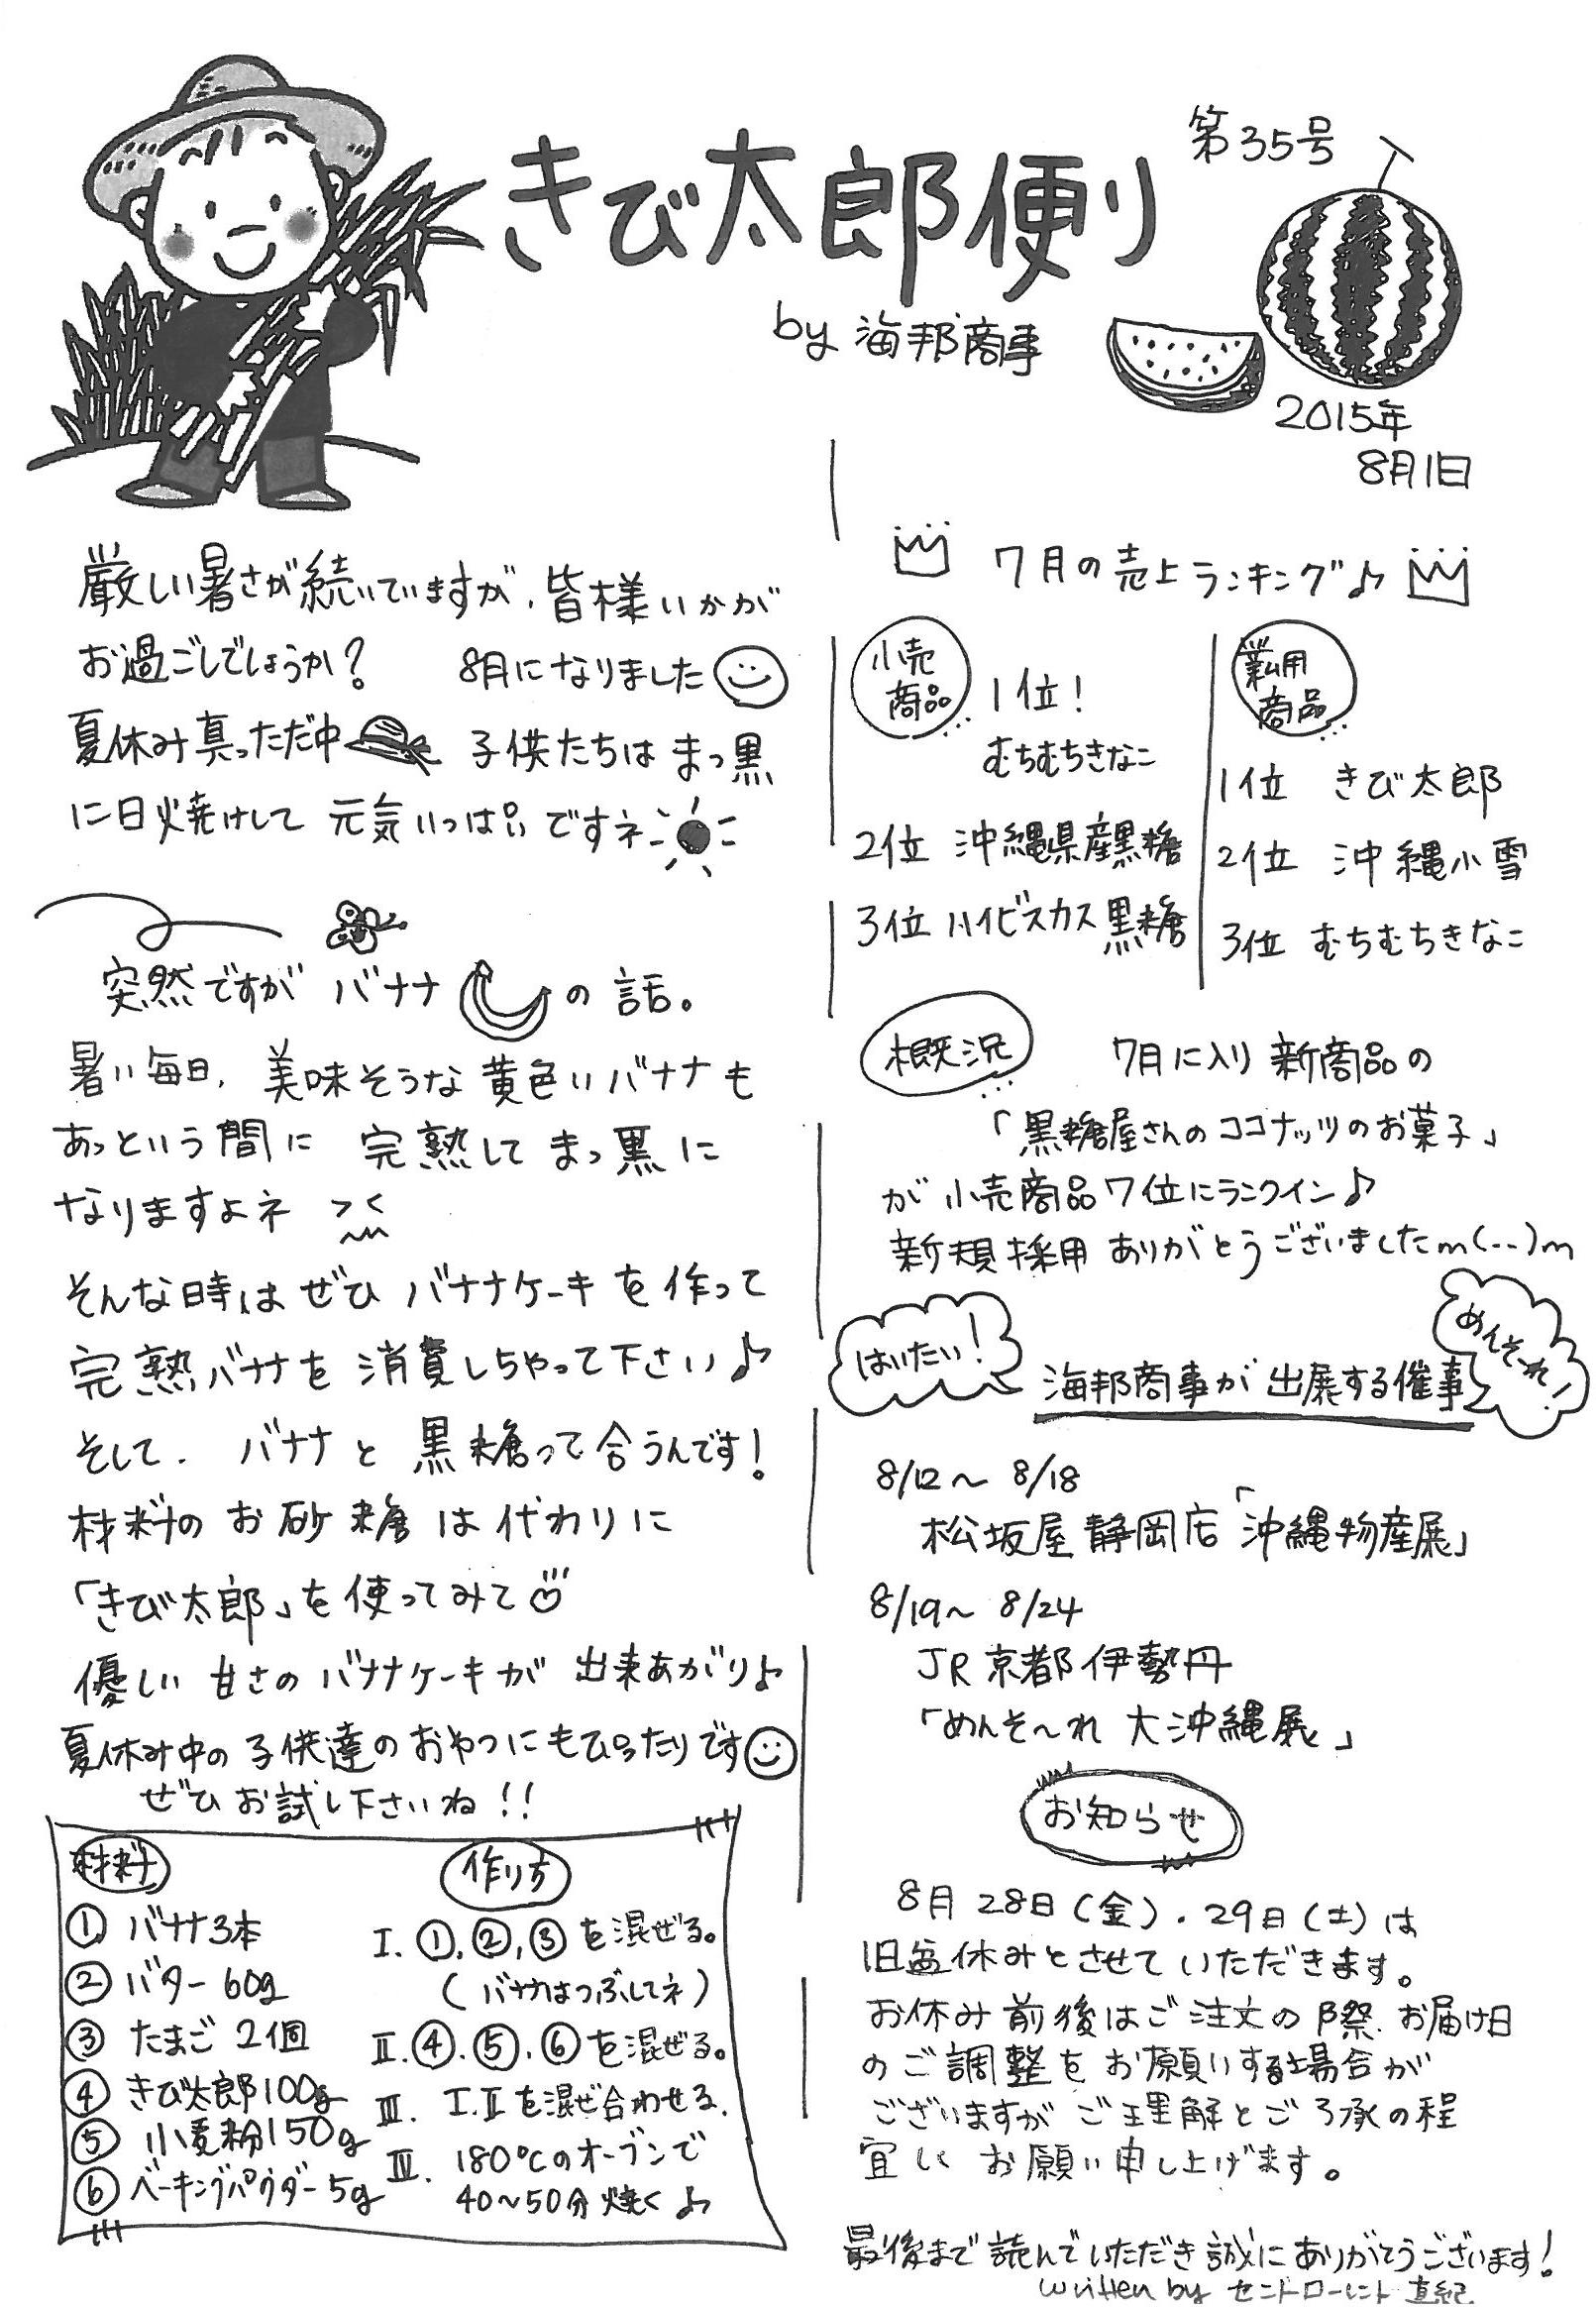 きび太郎便り
第35号
by 海邦商事
2015年
8月1日
厳しい暑さが続いていますが、皆様いかが
お過ごしでしょうか? 8月になりました
夏休み真っただ中 子供たちは まっ黒
に日焼けして 元気いっぱいですネ
突然ですが バナナ の話。
暑い毎日、美味そうな黄色いバナナも
あっという間に 完熟して まっ黒に
なりますよネ
そんな時はぜひ バナナケーキを作って
完熟バナナを 消費しちゃって下さい♪
そして、バナナと 黒糖って合うんです!
材料の お砂糖は代わりに
「きび太郎」を使ってみて
優しい 甘さの バナナケーキが 出来あがり♪
夏休み中の子供達のおやつにもぴったりです
ぜひ お試し下さいね!!
材料
① バナナ3本
② バター 60g
③ たまご 2個
④ きび太郎100g
⑤ 小麦粉150g
⑥ ベーキングパウダー5g
作り方
Ⅰ. ①,②,③を混ぜる。
(バナナはつぶしてネ)
Ⅱ.④.⑤.⑥を混ぜる。
Ⅲ. Ⅰ.Ⅱを混ぜ合わせる.
Ⅳ. 180℃のオーブンで
40~50分 焼く♪
7月の売上ランキング♪
小売
商品
1位!
むちむちきなこ
2位 沖縄県産黒糖
3位 ハイビスカス黒糖
業ム用
商品
1位 きび太郎
2位 沖縄小雪
3位 むちむちきなこ
概況
7月に入り 新商品の
「黒糖屋さんのココナッツのお菓子」
が 小売商品7位にランクイン♪
新規採用 ありがとうございましたm(..)m
はいたい!
海邦商事が 出展する催事
めんそーれ!
8/12~ 8/18
松坂屋 静岡店「沖縄物産展」
8/19~ 8/24
JR京都伊勢丹
「めんそ~れ 大沖縄展」
お知らせ
8月 28日(金).29日(土)は
旧盆休みとさせていただきます。
お休み前後はご注文の際、お届け日
のご調整をお願いする場合が
ございますが ご理解とご了承の程
宜しく お願い申し上げます。
最後まで読んでいただき誠にありがとうございます!
written by セントローレント 真紀